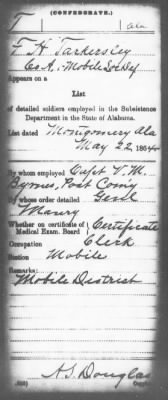 (CONFEDERATE.)
T Ala
F. H. Tarkersley
Co A. Mobile
Appears on a
List
of detailed soldiers employed in the Subsistence
Department in the State of Alabama.
List dated Montgomery Ala
May 22, 1864
By whom employed Capt V. M.
Byrnes, Post Comsy
By whose order detailed Genl
Maury
Whether on certificate of Medical Exam. Board Certificate
Occupation Clerk
Station Mobile
Remarks:
Mobile District
A.S. Douglas